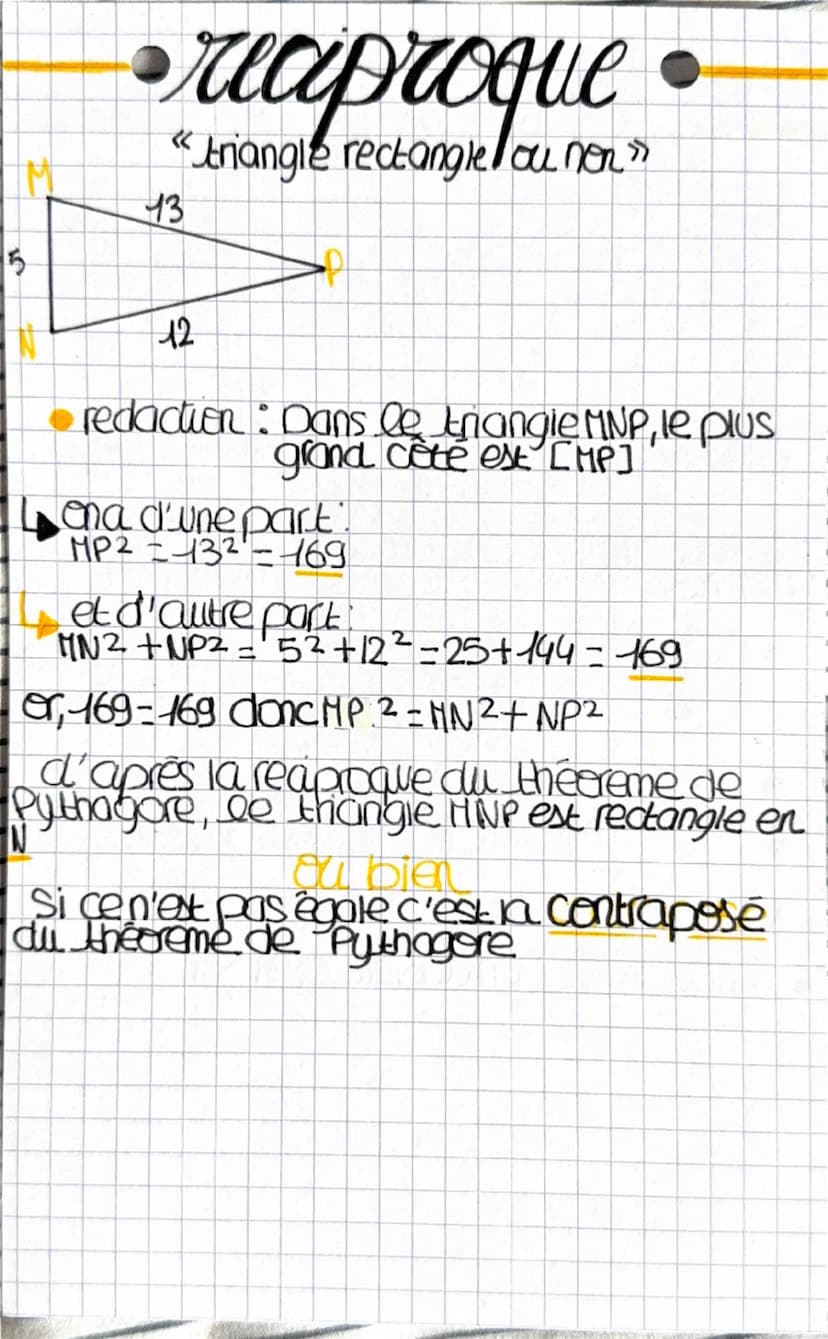 reciproque
"triangle rectangle ou non"
M
13
5
P
N
12
• redaction : Dans le triangle MNP, le plus
grand côté est [MP]
↳ on a d'une part :
MP2 = 13² = 169
↳ et d'autre part :
MN2 + NP2 = 5² + 12² = 25 + 144 = 169
or, 169 = 169 donc MP 2 = MN2 + NP2
d'après la reciproque du théoreme de
Pythagore, le triangle MNP est rectangle en
N
ou bien
si ce n'est pas égale c'est la contraposé
du théoreme de Pythagore